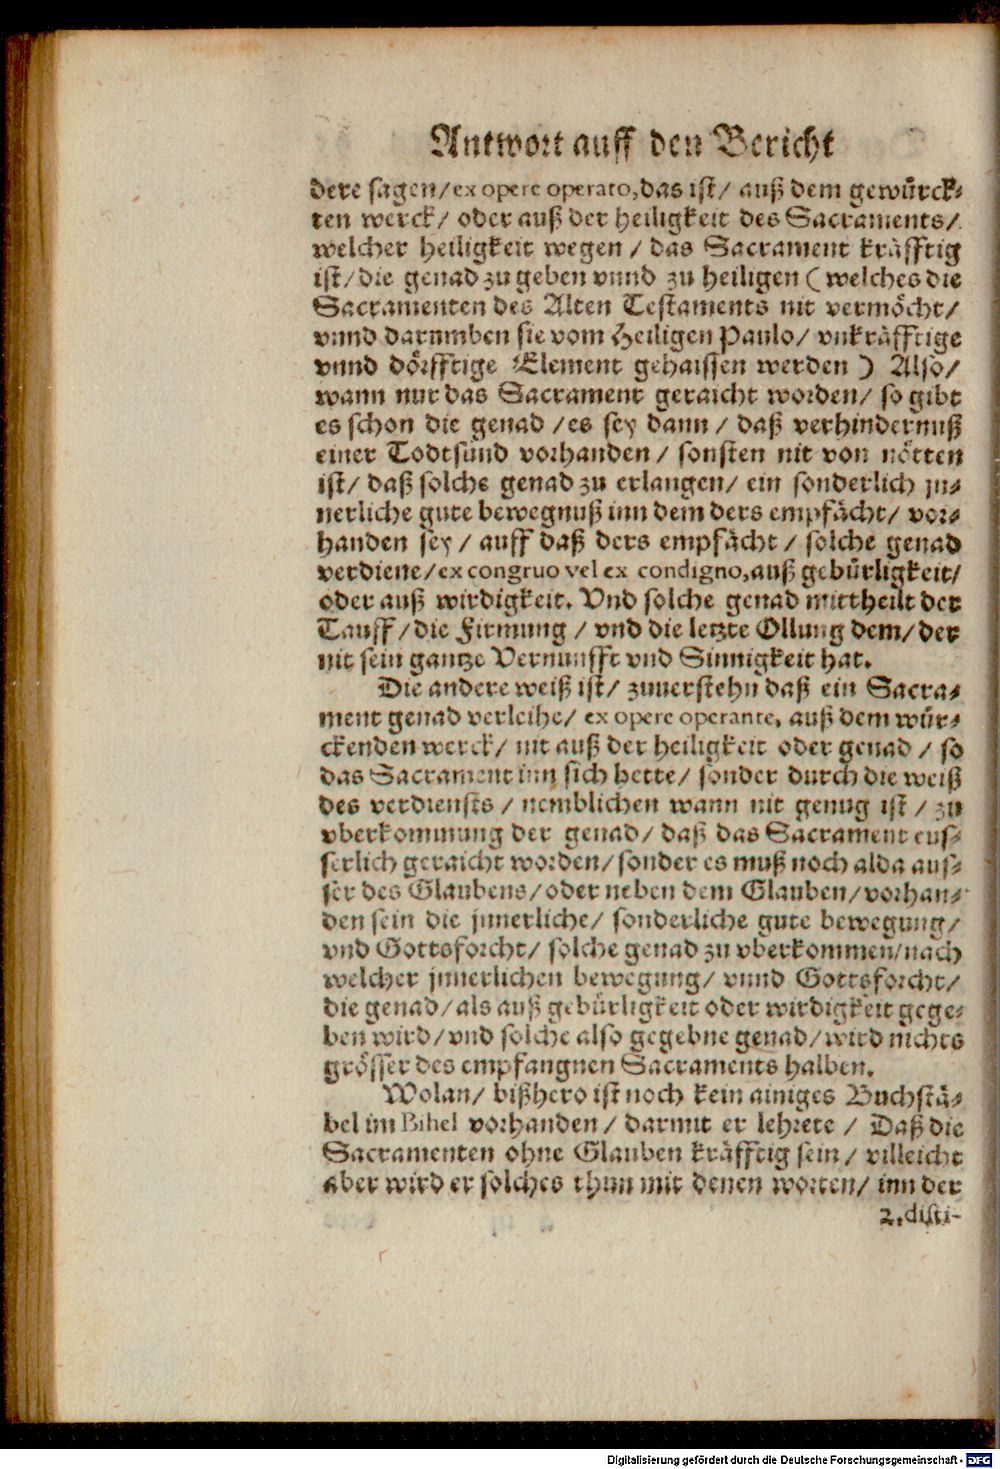 Antwort auff den Bericht
dere sagen/ ex opere operato, das ist/ auß dem gewürck-
ten werck/ oder auß der heiligkeit des Sacraments/
welcher heiligkeit wegen / das Sacrament kräfftig
ist/ die genad zu geben vnnd zu heiligen ( welches die
Sacramenten des Alten Testaments nit vermöcht/
vnnd darumben sie vom Heiligen Paulo/ vnkräfftige
vnnd dörfftige Element gehaissen werden ) Also/
wann nur das Sacrament geraicht worden/ so gibt
es schon die genad / es sey dann / daß verhindernuß
einer Todtsünd vorhanden / sonsten nit von nötten
ist/ daß solche genad zu erlangen/ ein sonderlich jn-
nerliche gute bewegnuß inn dem ders empfächt/ vor-
handen sey / auff daß ders empfächt / solche genad
verdiene/ ex congruo vel ex condigno, auß gebürligkeit/
oder auß wirdigkeit. Vnd solche genad mittheilt der
Tauff / die Firmung / vnd die letzte Ollung dem/ der
nit sein gantze Vernunfft vnd Sinnigkeit hat.
Die andere weiß ist/ zuuerstehn daß ein Sacra-
ment genad verleihe/ ex opere operante, auß dem wür-
ckenden werck/ nit auß der heiligkeit oder genad / so
das Sacrament inn sich hette/ sonder durch die weiß
des verdiensts / nemblichen wann nit genug ist / zu
vberkommung der genad/ daß das Sacrament eus-
serlich geraicht worden/ sonder es muß noch alda aus-
ser des Glaubens/ oder neben dem Glauben/ vorhan-
den sein die jnnerliche/ sonderliche gute bewegung/
vnd Gottsforcht/ solche genad zu vberkommen/ nach
welcher jnnerlichen bewegung/ vnnd Gottsforcht/
die genad/ als auß gebürligkeit oder wirdigkeit gege-
ben wird/ vnd solche also gegebne genad/ wird nichts
grösser des empfangnen Sacraments halben.
Wolan/ bißhero ist noch kein ainiges Buchstä-
bel im Bibel vorhanden / darmit er lehrete / Daß die
Sacramenten ohne Glauben kräfftig sein/ villeicht
aber wird er solches thun mit denen worten/ inn der
2. disti-
Digitalisierung gefördert durch die Deutsche Forschungsgemeinschaft - DFG